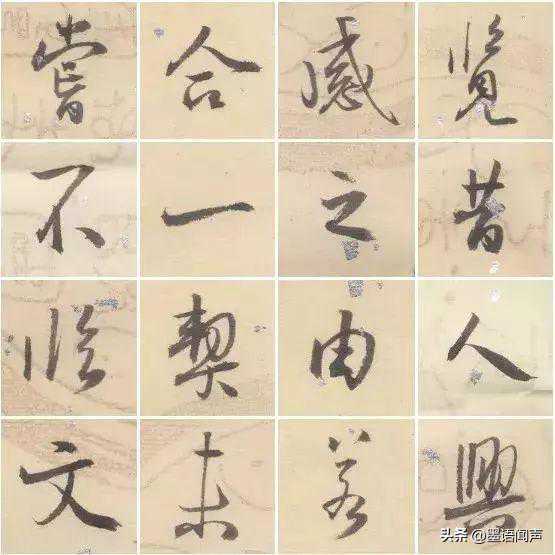 覽昔人興
感之由若
合一契未
嘗不臨文
头条 @墨语闻声